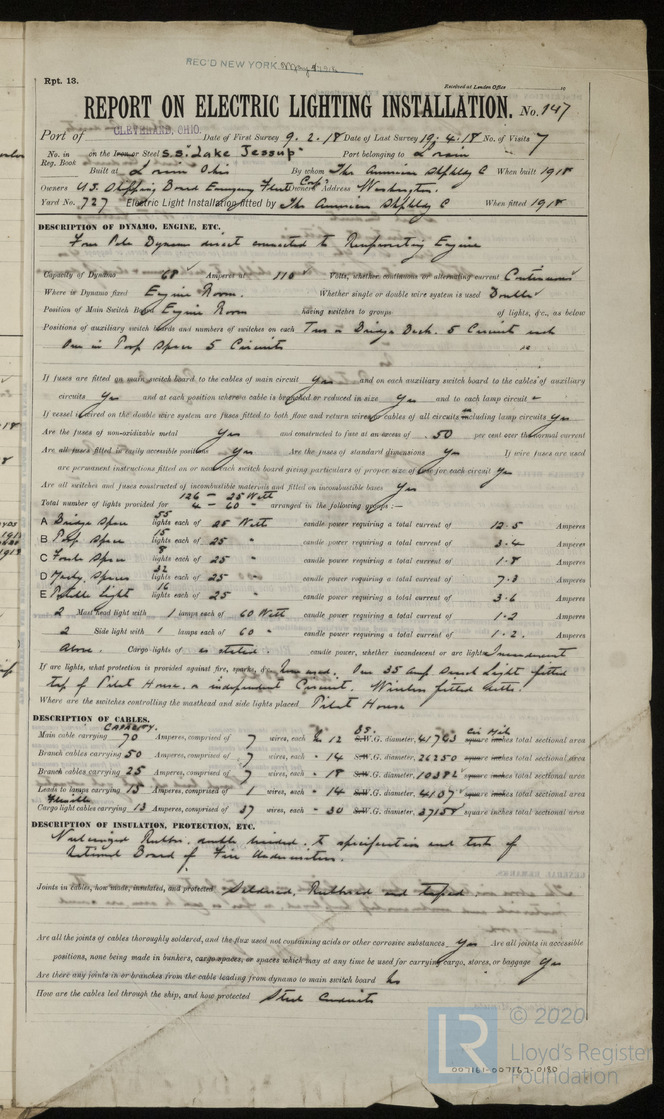 REC'D NEW YORK May
Rpt. 13.
Received at London Office 19
REPORT ON ELECTRIC LIGHTING INSTALLATION. No. 147
Port of CLEVELAND, OHIO. Date of First Survey 9. 2. 18 Date of Last Survey 19. 4. 18 No. of Visits 7
No. in on the Iron or Steel S.S. Lake Jessup Port belonging to Lorain
Reg. Book
Built at Lorain Ohio By whom The American Shpbldg C When built 1918
Owners U.S. Shipping Board Emergency Fleet Corp. Owners' Address Washington.
Yard No. 727 Electric Light Installation fitted by The American Shpbldg C When fitted 1918
DESCRIPTION OF DYNAMO, ENGINE, ETC.
Four Pole Dynamo direct connected to Reciprocating Engine
Capacity of Dynamo 68 Amperes at 110 Volts, whether continuous or alternating current Continuous
Where is Dynamo fixed Engine Room. Whether single or double wire system is used Double
Position of Main Switch Board Engine Room having switches to groups of lights, &c., as below
Positions of auxiliary switch boards and numbers of switches on each Two on Bridge Deck. 5 Circuits each
One in Poop Space 5 Circuits
If fuses are fitted on main switch board to the cables of main circuit yes and on each auxiliary switch board to the cables of auxiliary
circuits yes and at each position where a cable is branched or reduced in size yes and to each lamp circuit
If vessel is wired on the double wire system are fuses fitted to both flow and return wires or cables of all circuits including lamp circuits yes
Are the fuses of non-oxidizable metal yes and constructed to fuse at an excess of 50 per cent over the normal current
Are all fuses fitted in easily accessible positions yes Are the fuses of standard dimensions yes If wire fuses are used
are permanent instructions fitted on or near each switch board giving particulars of proper size of fuse for each circuit yes
Are all switches and fuses constructed of incombustible materials and fitted on incombustible bases yes
126 - 25 Watt
Total number of lights provided for 4 - 60 - arranged in the following groups :—
A Bridge Space 55 lights each of 25 Watt candle power requiring a total current of 12.5 Amperes
B Poop Space 15 lights each of 25 " candle power requiring a total current of 3.4 Amperes
C Forecle Space 8 lights each of 25 " candle power requiring a total current of 1.8 Amperes
D Mchy. Spaces 32 lights each of 25 " candle power requiring a total current of 7.3 Amperes
E Portable Light 16 lights each of 25 " candle power requiring a total current of 3.6 Amperes
2 Mast head light with 1 lamps each of 60 Watt candle power requiring a total current of 1.2 Amperes
2 Side light with 1 lamps each of 60 " candle power requiring a total current of 1.2. Amperes
Above. Cargo lights of as stated. candle power, whether incandescent or arc lights Incandescent
If arc lights, what protection is provided against fire, sparks, &c. None used. One 35 Amp. Search Light fitted
top of Pilot House. on independent Circuit. Wireless fitted
Where are the switches controlling the masthead and side lights placed Pilot House
DESCRIPTION OF CABLES.
CAPACITY.
Main cable carrying 70 Amperes, comprised of 7 wires, each 12 B.S. S.W.G. diameter, 41743 Cir Mils square inches total sectional area
Branch cables carrying 50 Amperes, comprised of 7 wires, each " 14 S.W.G. diameter, 26250 square inches total sectional area
Branch cables carrying 25 Amperes, comprised of 7 wires, each " 18 S.W.G. diameter, 10382 square inches total sectional area
Leads to lamps carrying 15 Amperes, comprised of 1 wires, each " 14 S.W.G. diameter, 4107 square inches total sectional area
Flexible
Cargo light cables carrying 13 Amperes, comprised of 37 wires, each " 30 S.W.G. diameter, 3715 square inches total sectional area
DESCRIPTION OF INSULATION, PROTECTION, ETC.
Vulcanized Rubber, double braided. to specification and tests of
National Board of Fire Underwriters.
Joints in cables, how made, insulated, and protected Soldered, Rubbered and taped.
Are all the joints of cables thoroughly soldered, and the flux used not containing acids or other corrosive substances yes Are all joints in accessible
positions, none being made in bunkers, cargo spaces, or spaces which may at any time be used for carrying cargo, stores, or baggage yes
Are there any joints in or branches from the cable leading from dynamo to main switch board no
How are the cables led through the ship, and how protected Steel Conduits
© 2020
LR
Lloyd's Register
Foundation
007181-007187-0180